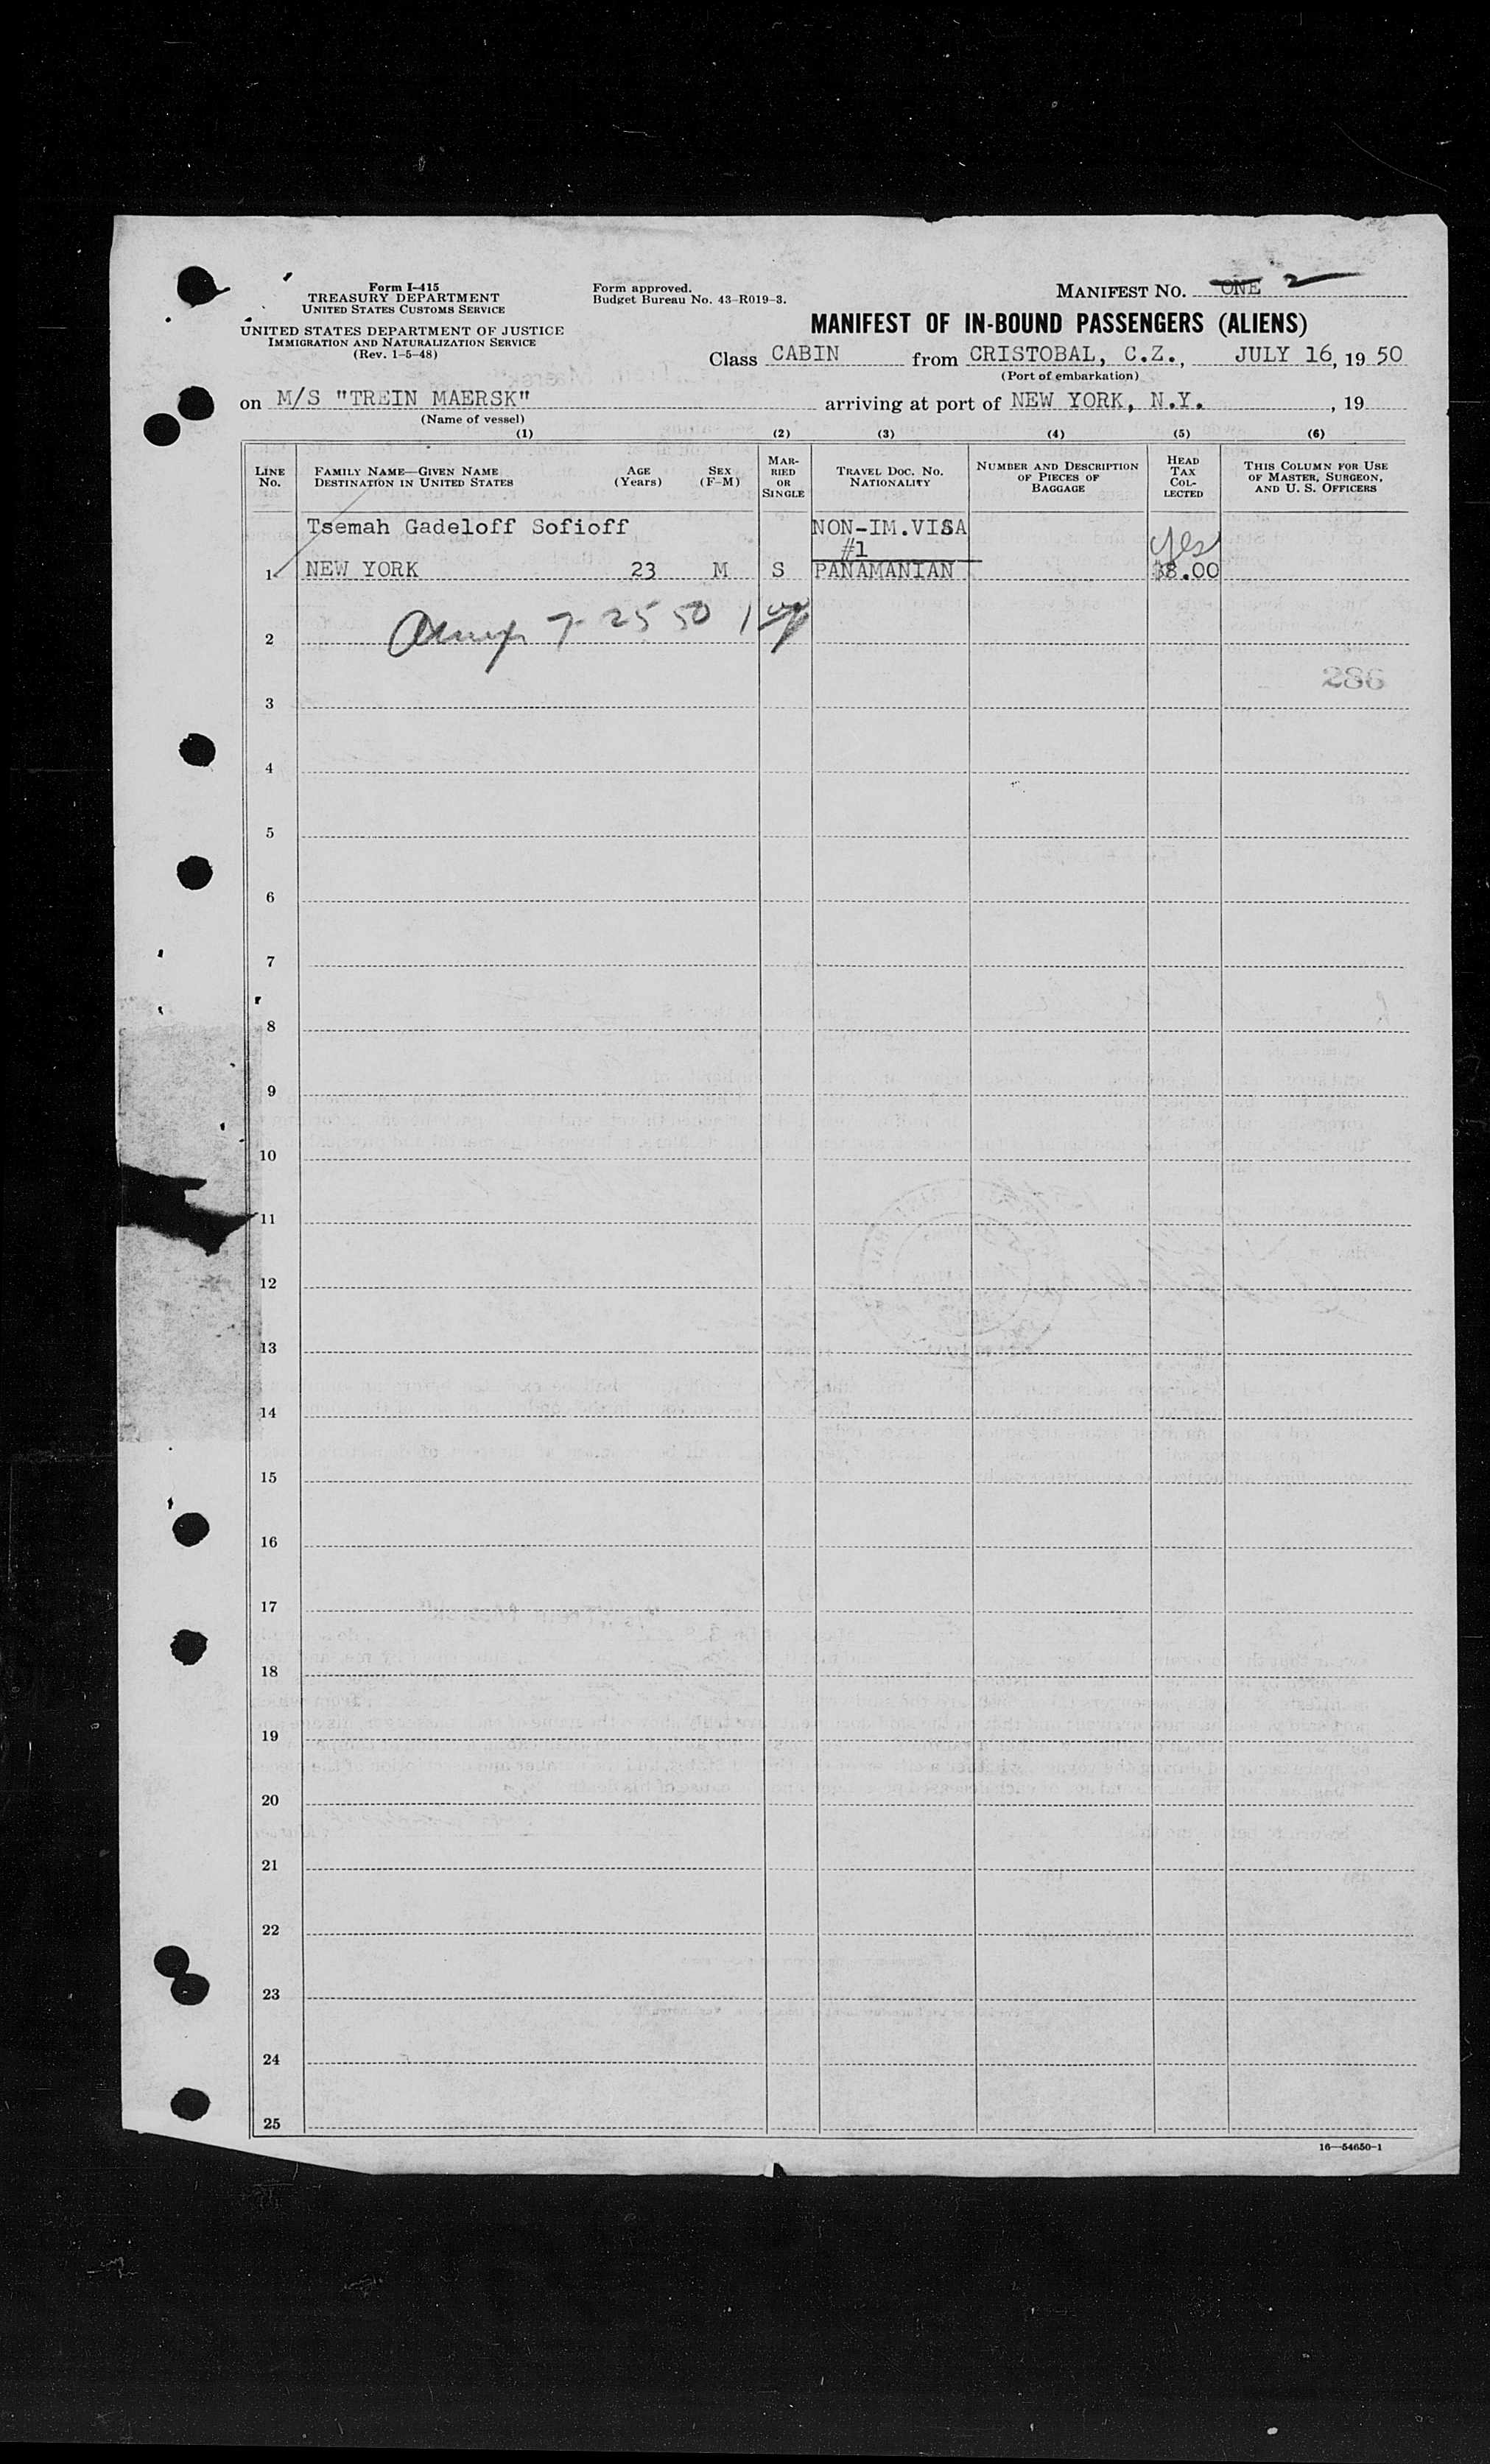 Form I-415
TREASURY DEPARTMENT
UNITED STATES CUSTOMS SERVICE
UNITED STATES DEPARTMENT OF JUSTICE
IMMIGRATION AND NATURALIZATION SERVICE
(Rev. 1-5-48)
Form approved.
Budget Bureau No. 43-R019-3.
MANIFEST NO. ONE 2
MANIFEST OF IN-BOUND PASSENGERS (ALIENS)
Class CABIN from CRISTOBAL, C.Z., JULY 16, 19 50
(Port of embarkation)
on M/S "TREIN MAERSK" arriving at port of NEW YORK, N.Y. , 19
(Name of vessel)
(1) (2) (3) (4) (5) (6)
LINE No. FAMILY NAME—GIVEN NAME DESTINATION IN UNITED STATES AGE (Years) SEX (F-M) MARRIED OR SINGLE TRAVEL DOC. NO. NATIONALITY NUMBER AND DESCRIPTION OF PIECES OF BAGGAGE HEAD TAX COLLECTED THIS COLUMN FOR USE OF MASTER, SURGEON, AND U. S. OFFICERS
Tsemah Gadeloff Sofioff NON-IM.VISA
#1 yes
1 NEW YORK 23 M S PANAMANIAN $8.00
7-25 50 1
2
286
3
4
5
6
7
8
9
10
11
12
13
14
15
16
17
18
19
20
21
22
23
24
25
16—54650-1